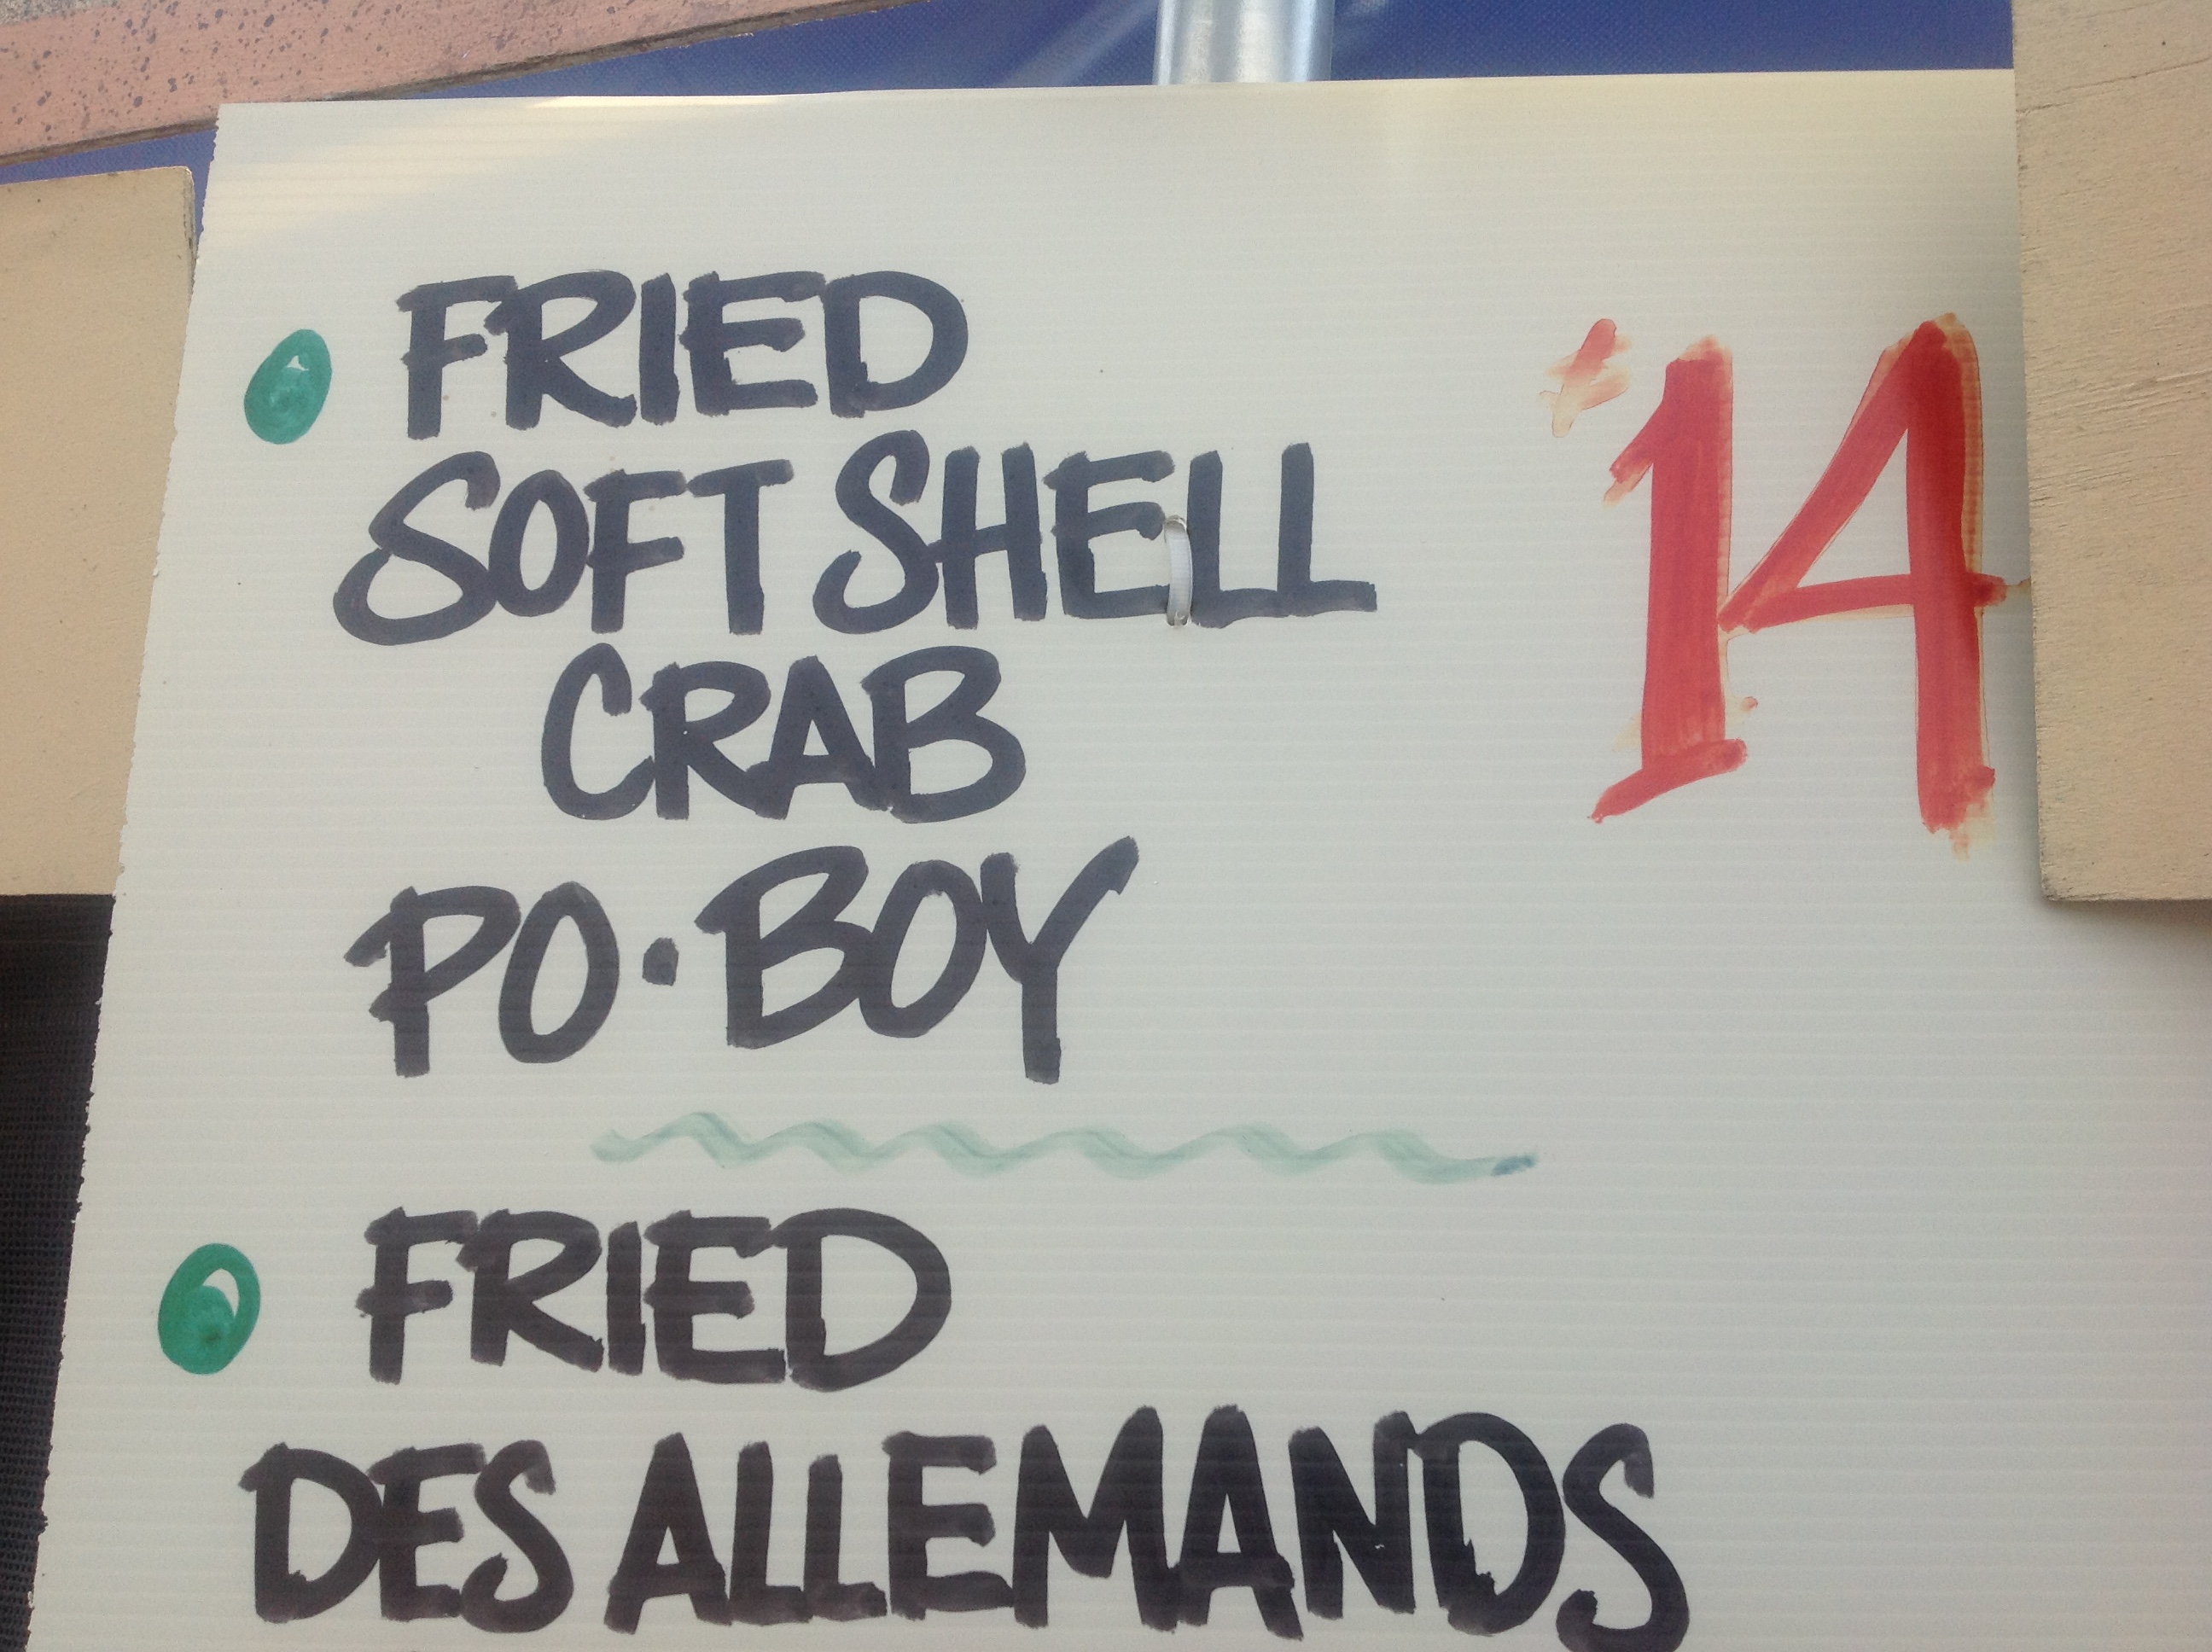 FRIED
SOFT SHELL
CRAB
PO•BOY
14
FRIED
DES ALLEMANDS